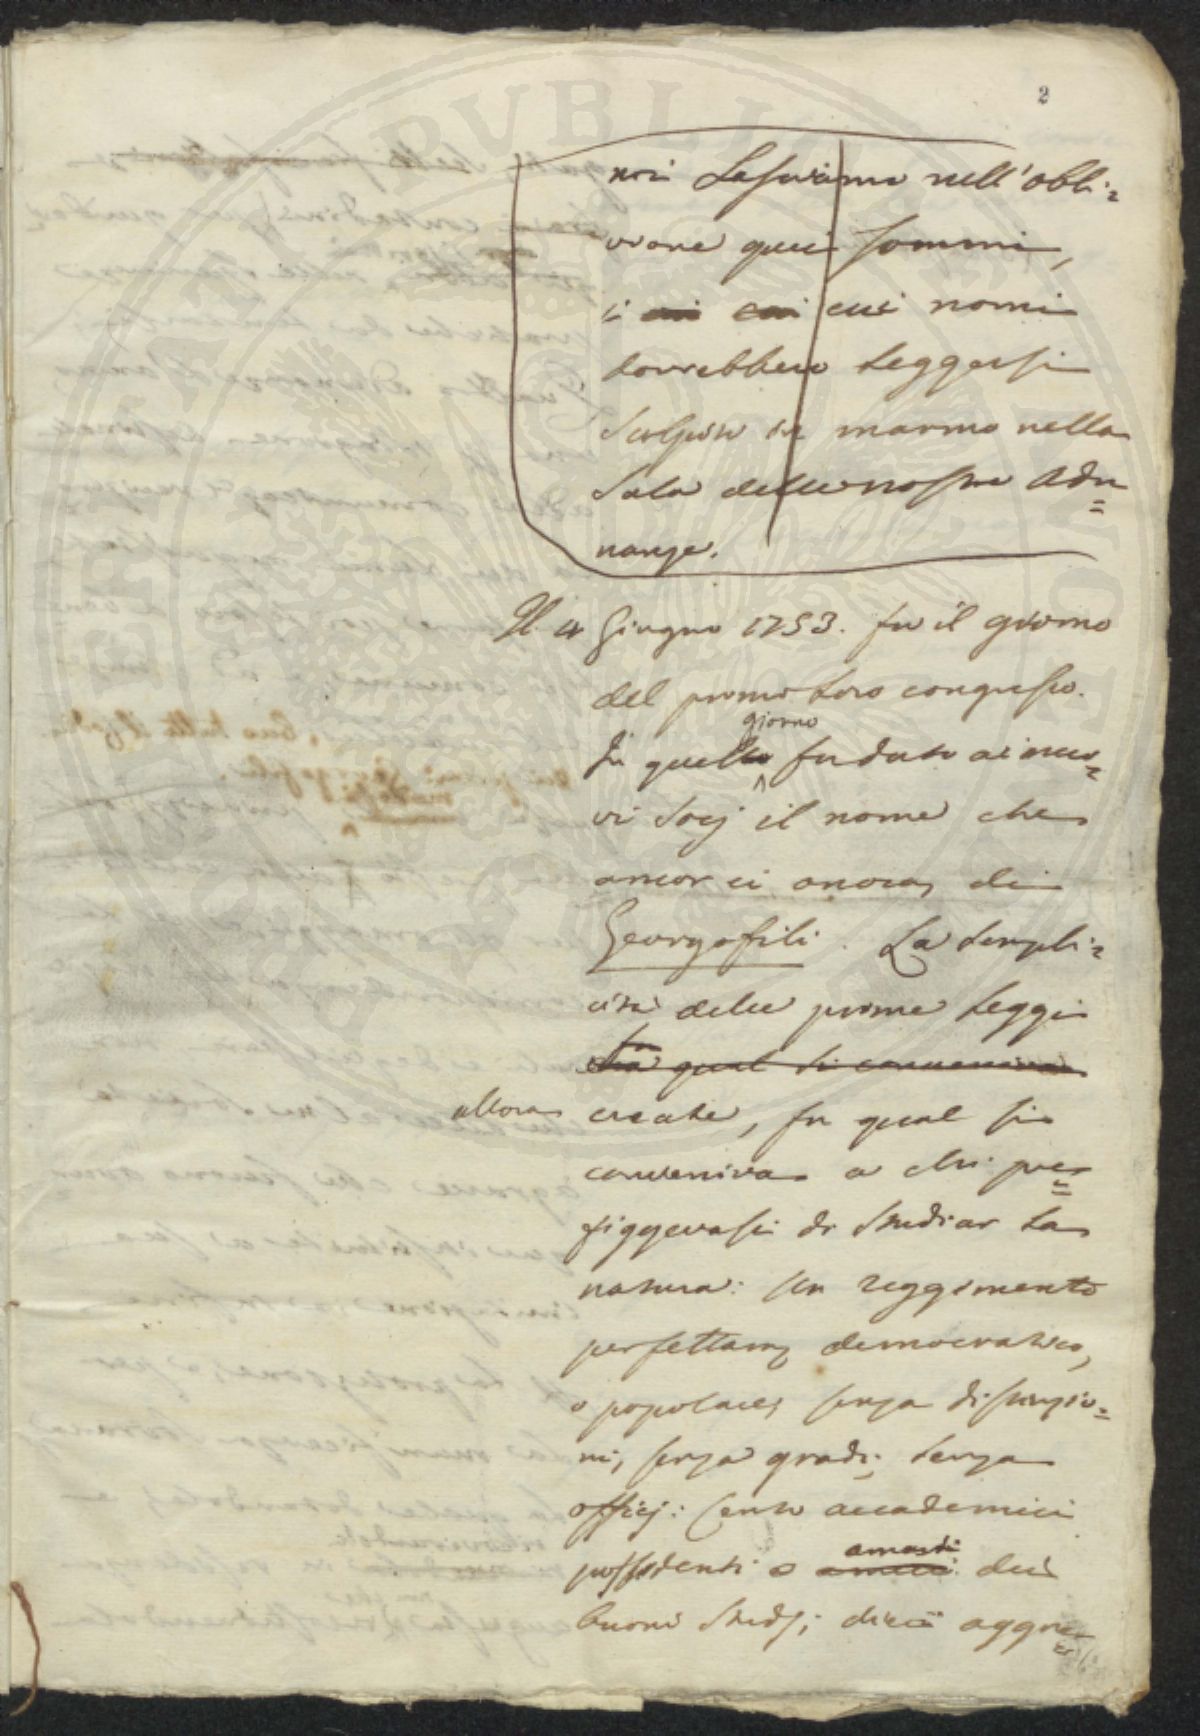 2
noi Lasciamo nell'obbli=
vione quei sommi,
i cui nomi
dovrebbero Leggersi
Scolpiti in marmo nella
Sala delle nostre Adu=
nanze.
Il 4 Giugno 1753. fu il giorno
del primo Loro congresso.
giorno
In quel fu dato ai nuo=
vi Socj il nome che
ancor ci onora, di
Georgofili. La sempli=
cità delle prime Leggi
fu qual si conveniva
allora create, fu qual si
conveniva a chi pre=
figgevasi di Studiar La
natura: Un reggimento
perfettam democratico,
o popolare, senza distinzio=
ni, senza gradi, senza
officj: Cento accademici
amanti
possidenti o amici dei
buoni Studj; dieci aggre=